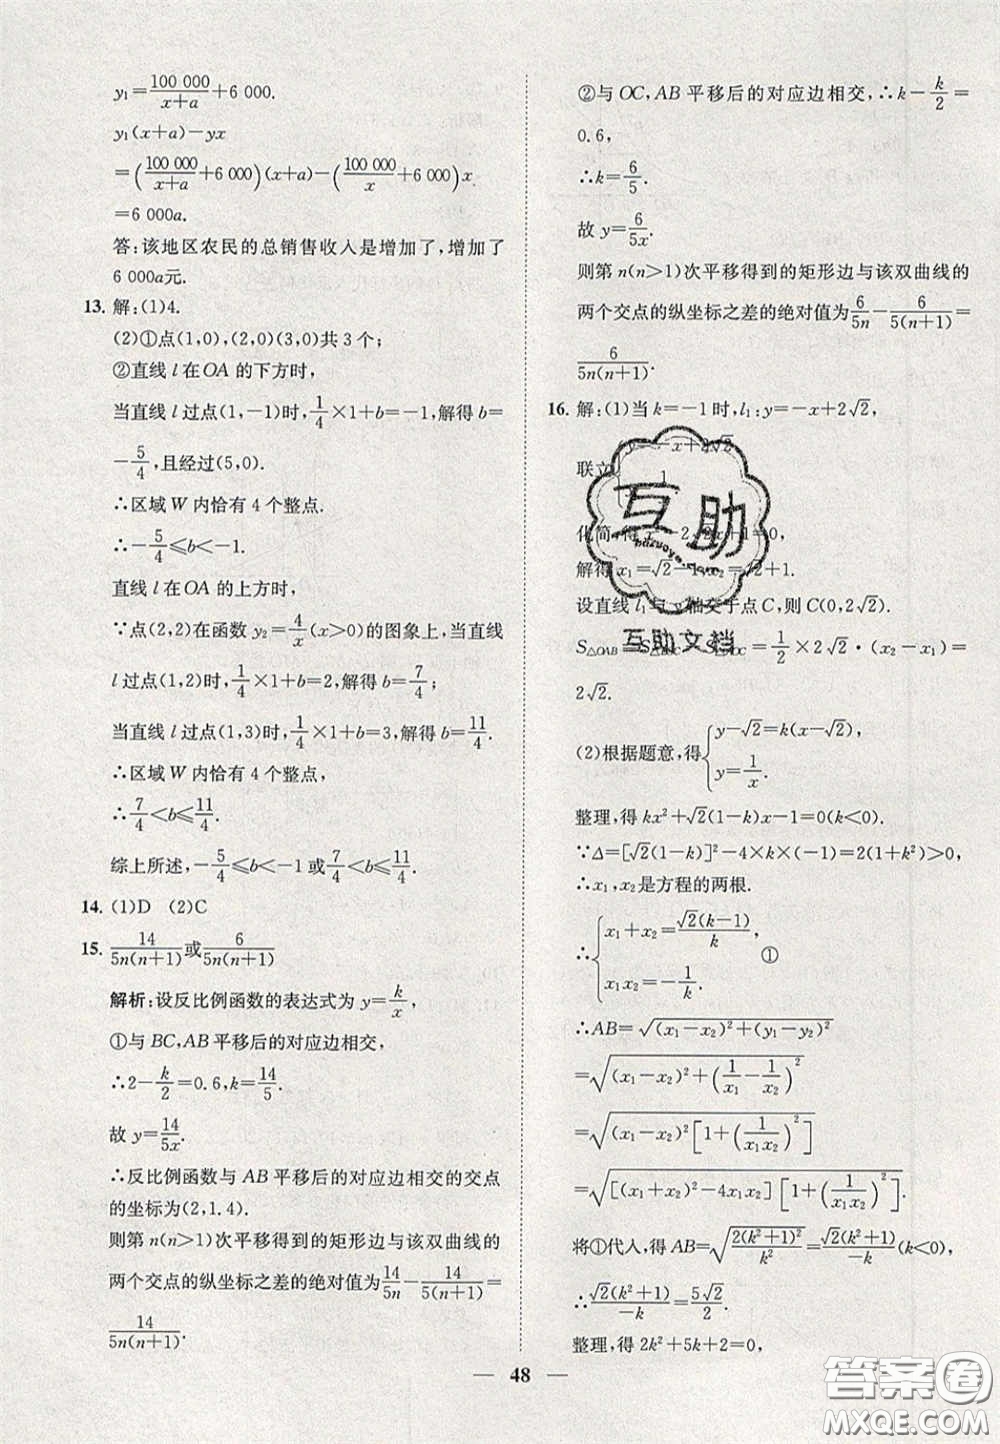 y₁=100 000/(x+a)+6 000.
y₁(x+a)-yx
=(100 000/(x+a)+6 000)(x+a)-(100 000/x+6 000)x
=6 000a.
答:该地区农民的总销售收入是增加了,增加了
6 000a元.
13. 解:(1)4.
(2)①点(1,0),(2,0)(3,0)共3个;
②直线 l 在 OA 的下方时,
当直线 l 过点(1,-1)时,1/4×1+b=-1,解得 b=
-5/4,且经过(5,0).
∴区域 W 内恰有 4 个整点.
∴-5/4≤b<-1.
直线 l 在 OA 的上方时,
∵点(2,2)在函数 y₂=4/x(x>0)的图象上,当直线
l 过点(1,2)时,1/4×1+b=2,解得 b=7/4;
当直线 l 过点(1,3)时,1/4×1+b=3,解得 b=11/4.
∴区域 W 内恰有 4 个整点,
∴7/4<b≤11/4.
综上所述,-5/4≤b<-1 或 7/4<b≤11/4.
14. (1)D (2)C
15. 14/(5n(n+1))或6/(5n(n+1))
解析:设反比例函数的表达式为 y=k/x,
①与 BC,AB 平移后的对应边相交,
∴2-k/2=0.6,k=14/5.
故 y=14/(5x).
∴反比例函数与 AB 平移后的对应边相交的交点
的坐标为(2,1.4).
则第 n(n>1)次平移得到的矩形边与该双曲线的
两个交点的纵坐标之差的绝对值为14/(5n)-14/(5(n+1))=
14/(5n(n+1)).
②与 OC,AB 平移后的对应边相交,∴k-k/2=
0.6,
∴k=6/5.
故 y=6/(5x).
则第 n(n>1)次平移得到的矩形边与该双曲线的
两个交点的纵坐标之差的绝对值为6/(5n)-6/(5(n+1))=
6/(5n(n+1)).
16. 解:(1)当 k=-1 时,l₁:y=-x+2√2,
联立 -x+2√2
1
化简,得 x²-2√2x+1=0,
解得 x₁=√2-1,x₂=√2+1.
设直线 l₁ 与 y 轴交于点 C,则 C(0,2√2).
S△OAB=S S =1/2×2√2·(x₂-x₁)=
2√2.
(2)根据题意,得{y-√2=k(x-√2),
y=1/x.
整理,得 kx²+√2(1-k)x-1=0(k<0).
∵Δ=[√2(1-k)]²-4×k×(-1)=2(1+k²)>0,
∴x₁,x₂是方程的两根.
∴{x₁+x₂=√2(k-1)/k,
x₁x₂=-1/k. ①
∴AB=√((x₁-x₂)²+(y₁-y₂)²)
=√((x₁-x₂)²+(1/x₁-1/x₂)²)
=√((x₁-x₂)²[1+(1/(x₁x₂))²])
=√([(x₁+x₂)²-4x₁x₂][1+(1/(x₁x₂))²]).
将①代入,得 AB=√(2(k²+1)²/k²)=√2(k²+1)/(-k)(k<0),
∴√2(k²+1)/(-k)=5√2/2.
整理,得 2k²+5k+2=0,
— 48 —
互助
互助文档
答案圈
MXQE.COM